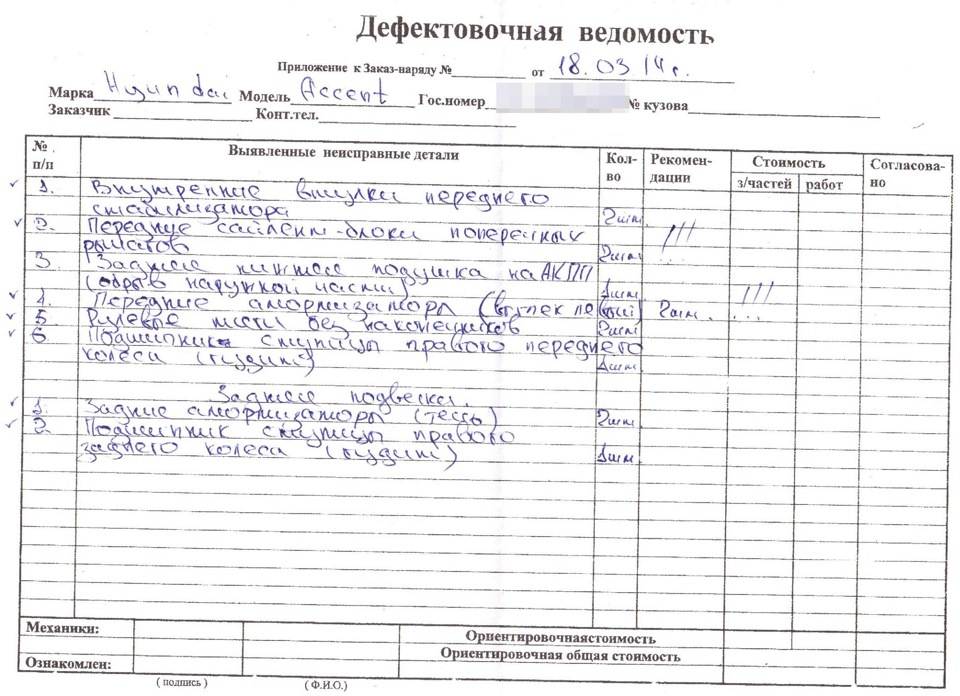 Дефектовочная ведомость
Приложение к Заказ-наряду №____ от 18.03 14г.
Марка Hyundai Модель Accent Гос.номер № кузова
Заказчик Конт.тел.
№ п/п Выявленные неисправные детали Кол-во Рекомендации Стоимость Согласовано
з/частей работ
1. Внутренние втулки переднего
стабилизатора 2шт.
2. Передние сайлент-блоки поперечных !!!
рычагов 2шт.
3. Заднее нижнее подушка на АКПП
(обрыв наружной части) 1шт. !!!
4. Передние амортизаторы (вытек левый) 2шт. ...
5. Рулевые тяги без наконечников 2шт.
6. Подшипник ступицы правого переднего
колеса (гудит) 1шт.
Заднее подвески.
1. Задние амортизаторы (тесты) 2шт.
2. Подшипник ступицы правого
заднего колеса (гудит) 1шт.
Механики: Ориентировочнаястоимость
Ориентировочная общая стоимость
Ознакомлен:
(подпись) (Ф.И.О.)